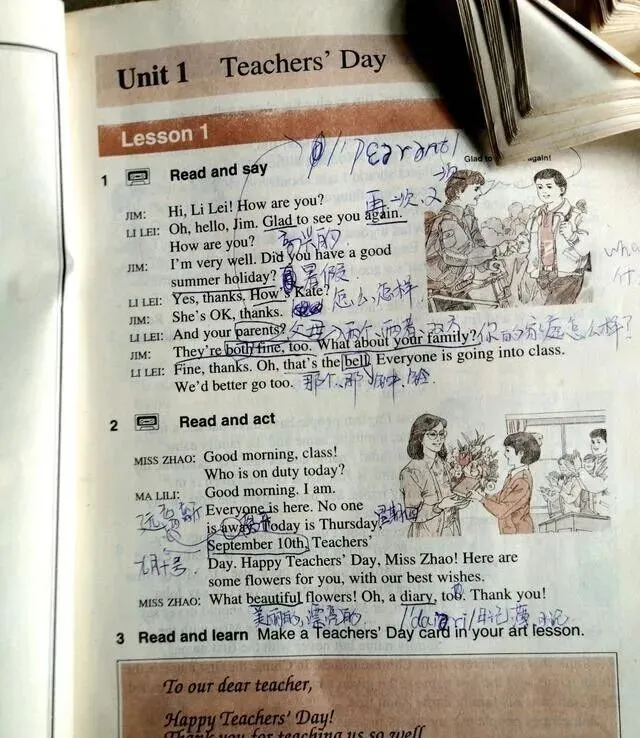 Unit 1 Teachers' Day
Lesson 1
1 Read and say
Glad to again!
JIM: Hi, Li Lei! How are you?
再一次、又一次
LI LEI: Oh, hello, Jim. Glad to see you again.
How are you? 高兴的
JIM: I'm very well. Did you have a good
summer holiday? 暑假
LI LEI: Yes, thanks. How's Kate? 怎么、怎样
JIM: She's OK, thanks.
LI LEI: And your parents? 父母 两个、两者、双方
JIM: They're both fine, too. What about your family? 你的家庭怎么样?
LI LEI: Fine, thanks. Oh, that's the bell. Everyone is going into class.
We'd better go too. 那个、那
2 Read and act
MISS ZHAO: Good morning, class!
Who is on duty today?
MA LILI: Good morning. I am.
Everyone is here. No one
is away. Today is Thursday, 星期四
September 10th, Teachers'
九月十号
Day. Happy Teachers' Day, Miss Zhao! Here are
some flowers for you, with our best wishes.
MISS ZHAO: What beautiful flowers! Oh, a diary, too. Thank you!
美丽的、漂亮的 日记
3 Read and learn Make a Teachers' Day card in your art lesson.
To our dear teacher,
Happy Teachers' Day!
Thank you for teaching us so well